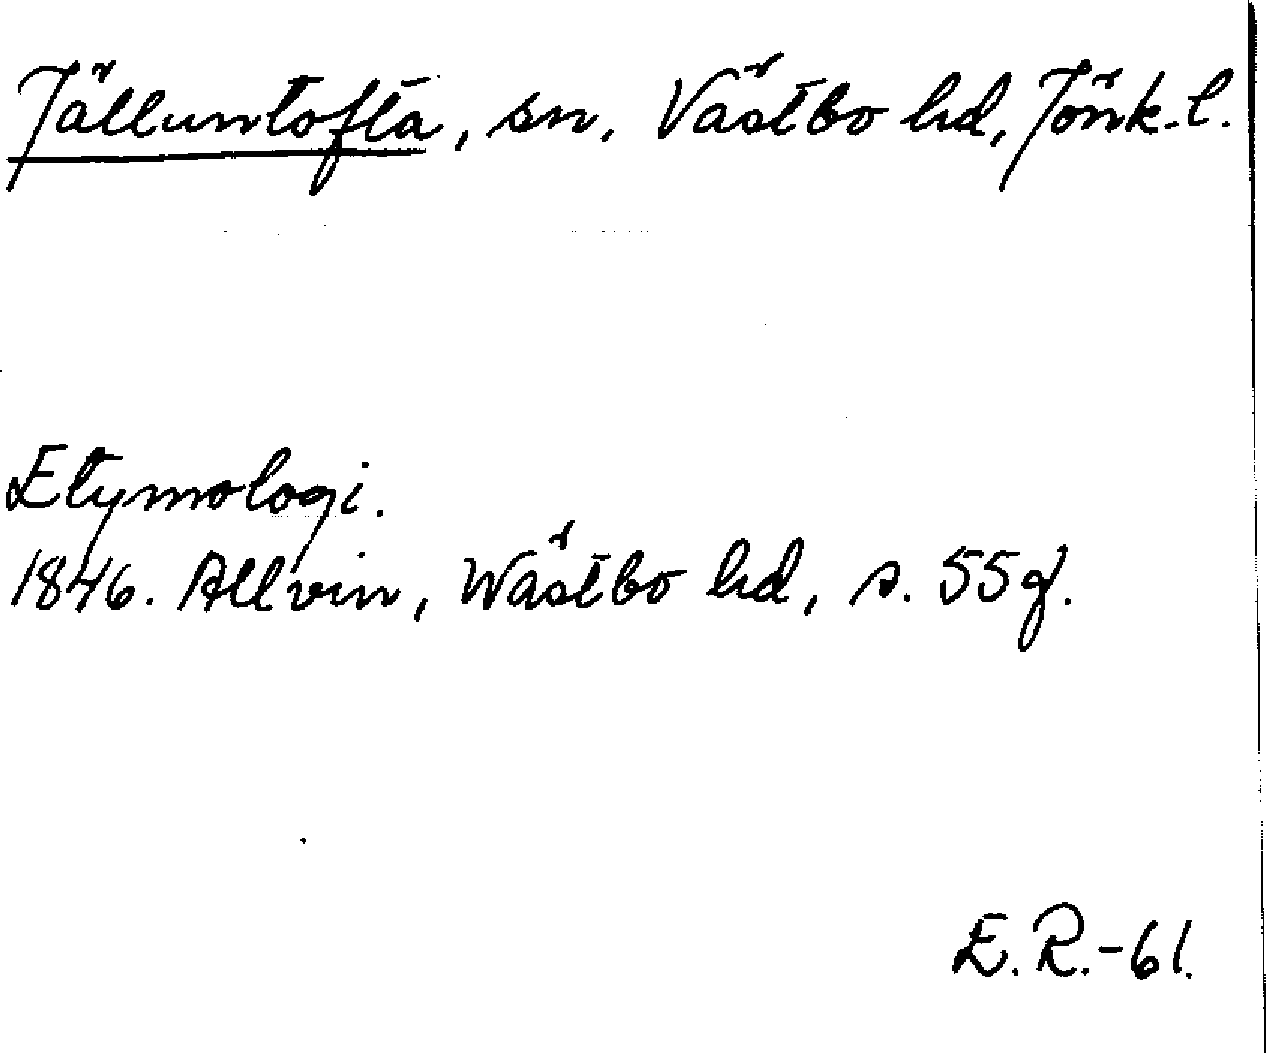 Jälluntofta, sn, Västbo hd, Jönk. l.
Etymologi.
1846. Allvin, Wästbo hd, s. 55 f.
E. R. -61.